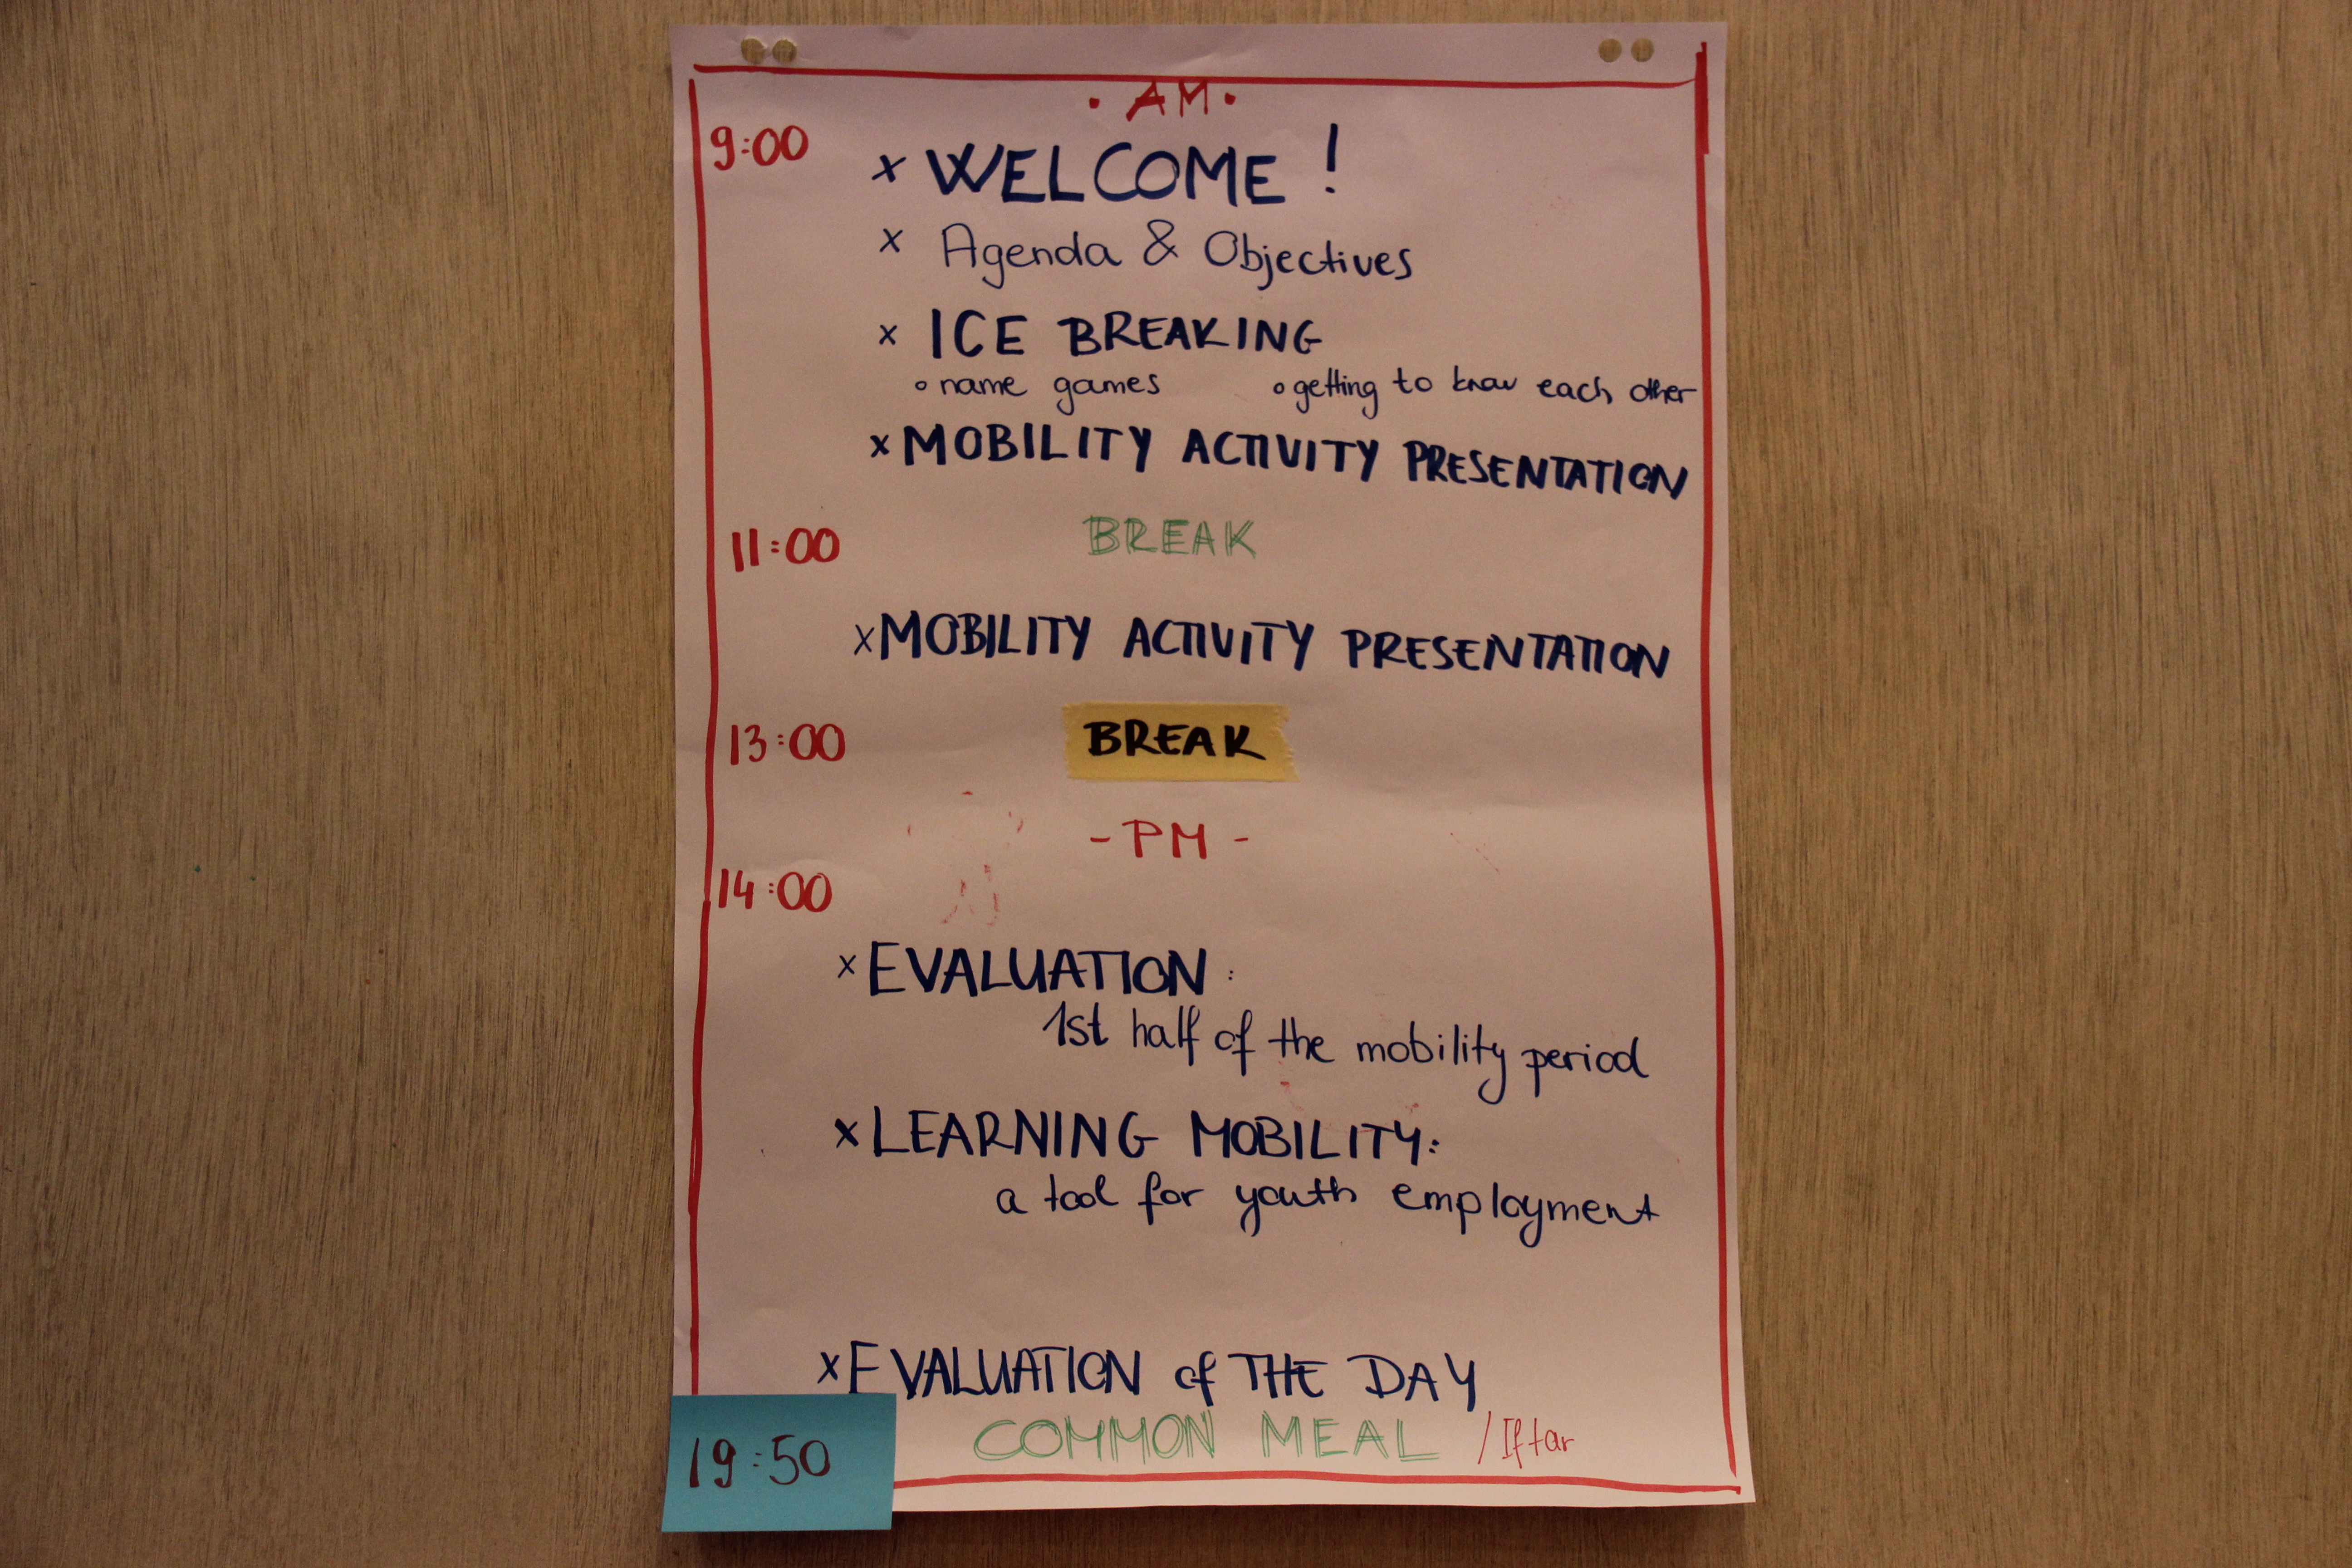 · AM ·
9:00
x WELCOME !
x Agenda & Objectives
x ICE BREAKING
o name games o getting to know each other
x MOBILITY ACTIVITY PRESENTATION
11:00 BREAK
x MOBILITY ACTIVITY PRESENTATION
13:00 BREAK
- PM -
14:00
x EVALUATION :
1st half of the mobility period
x LEARNING MOBILITY:
a tool for youth employment
x EVALUATION of THE DAY
19:50 COMMON MEAL / Iftar